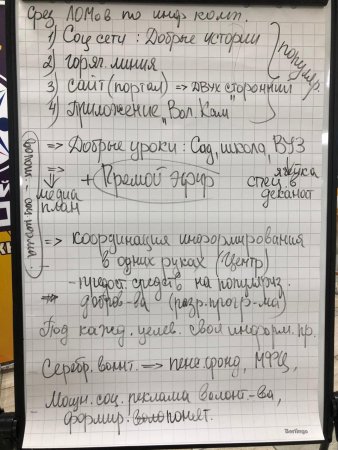 Сред ЛОМов по инф комп.
1) Соц сети: Добрые истории
2) горяч. линия
3) сайт (портал) => Двухсторонний
4) Приложение "Вол. Кам"
популяр.
=> Добрые уроки: Сад, школа, ВУЗ
+ Прямой эфир
медиа план
ячейка
спец. в деканат
=> координация информирования
в одних руках (Центр)
- предост. средств на популяриз.
добров-ва (разр. прогр-ма)
Под кажд. целев. своя информ. пр.
Серебр. волонт. => пенс. фонд, МФЦ,
Мощн. соц. реклама волонт-ва,
формир. понят.
Berlingo